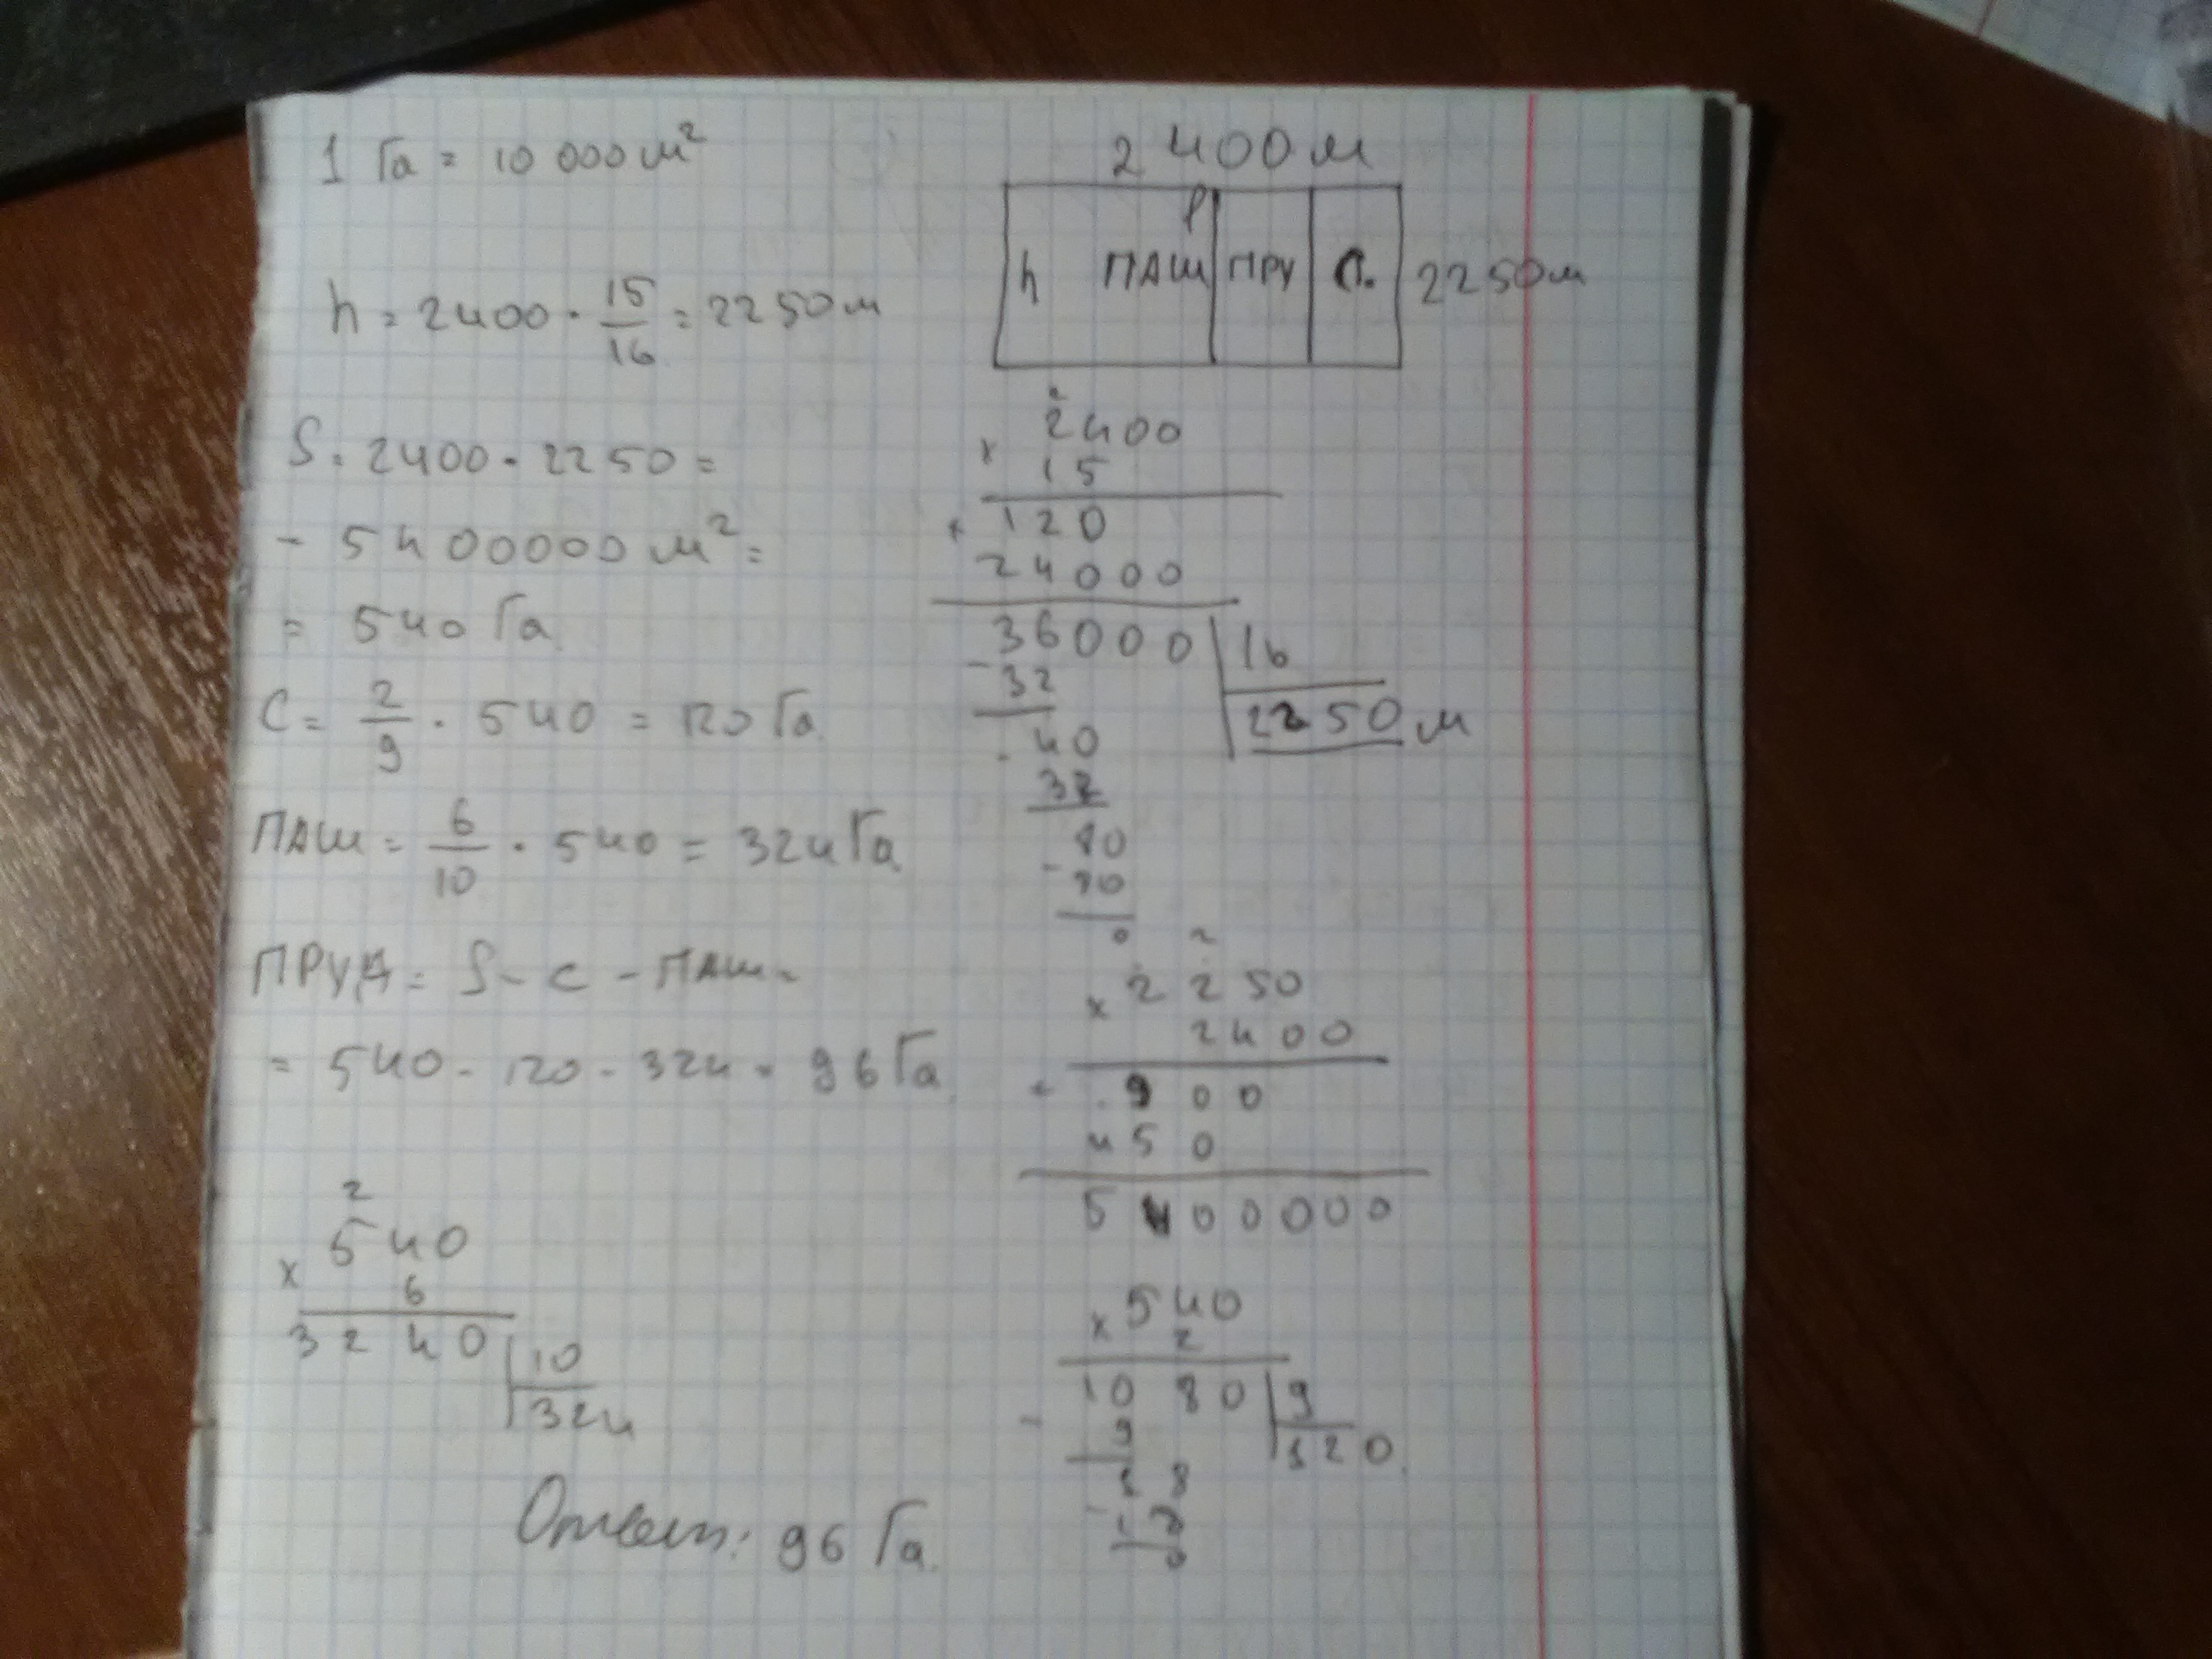 1 Га = 10 000 м²
h = 2400 · 15/16 = 2250 м
S = 2400 · 2250 =
= 5400000 м² =
= 540 Га
С = 2/9 · 540 = 120 Га
ПАШ = 6/10 · 540 = 324 Га
ПРУД = S - С - ПАШ =
= 540 - 120 - 324 = 96 Га
2
540
× 6
3240 | 10
324
Ответ: 96 Га.
2400 м
h ПАШ ПРУ С. 2250 м
2
2400
× 15
+ 120
24000
36000 | 16
- 32 2250 м
- 40
32
80
- 80
0
2
× 2250
2400
+ 900
450
5400000
× 540
2
1080 | 9
- 9 120
18
- 18
0